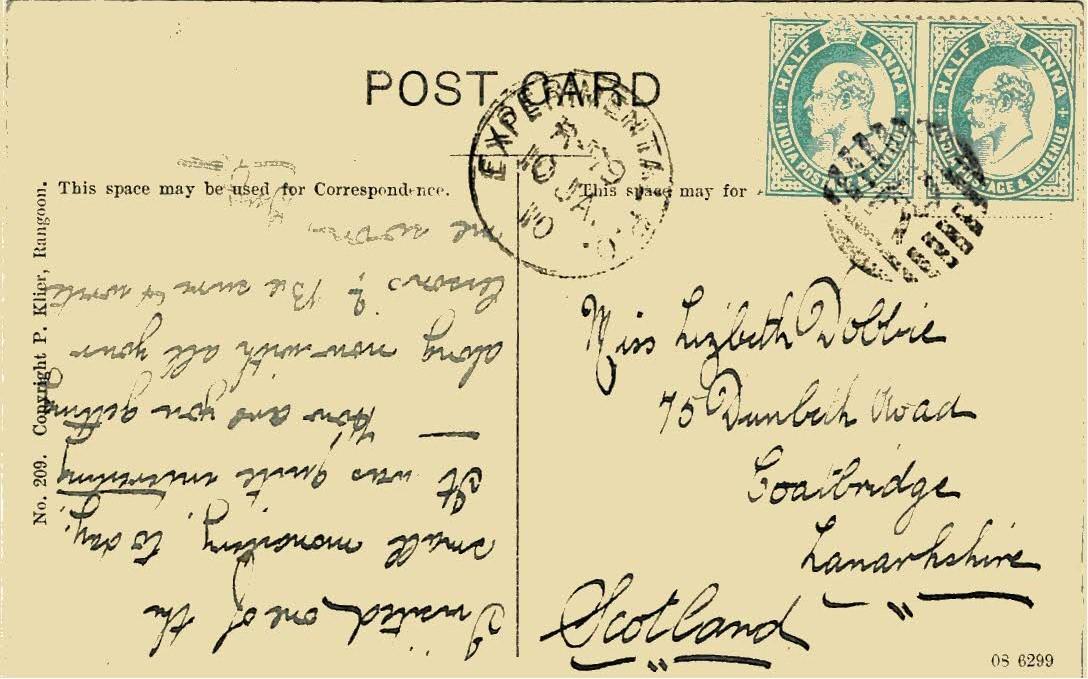 POST CARD
This space may be used for Correspondence.
This space may for
HALF ANNA
INDIA POSTAGE & REVENUE
HALF ANNA
INDIA POSTAGE & REVENUE
EXPERIMENTAL P.O.
10 JA. 10
No. 209. Copyright P. Klier, Rangoon.
I visited one of the
small monastery to day.
It was quite interesting
— How are you getting
along now with all your
lessons? Be sure & write
me soon.
Miss Lizbeth Dobbie
75 Dunbeth Road
Coatbridge
Lanarkshire
Scotland
08 6299